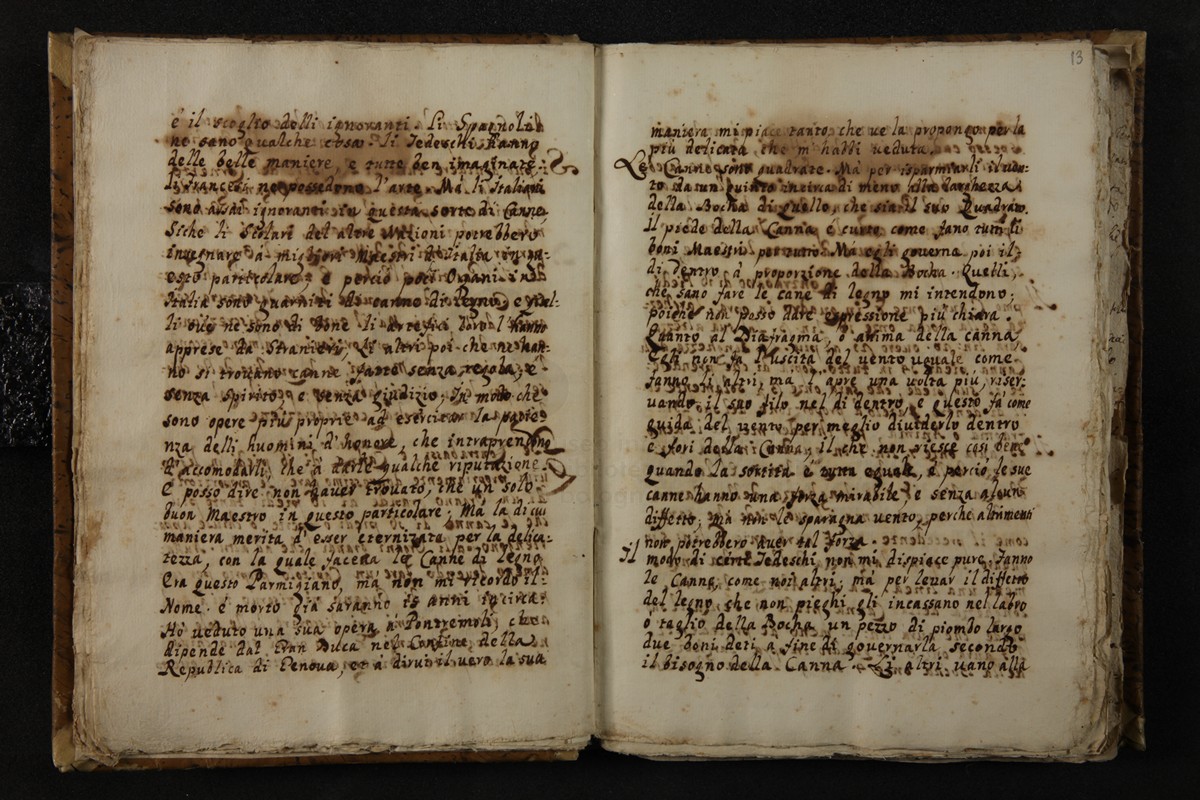 è il scoglio delli ignoranti. Li Spagnoli
ne sano qualche cosa. li Tedeschi hanno
delle belle maniere, e tutte ben imaginate:
li Francesi ne possedono l'arte. Mà li Italiani
sono assai ignoranti in questa sorte di Canne,
Siche li Scolari del altre Nationi potrebbero
insegnare à migliori Maestri d'Italia in qu-
esto particolare; e perciò poci Organi in
Italia sono guarniti di canne di legno, e quel-
li che ne sono di bone li artefici loro l'hanno
apprese da Stranieri, Li altri poi che ne han-
no si trovano canne fatte senza regola, e
senza spirito, e senza giudizio; In modo che
sono opere più proprie ad esercitar la patie-
nza delli huomini d'honore, che intraprendono
d'accomodarli, che à darle qualche riputazione
E posso dire non haver trovato, che un solo
buon Maestro in questo particolare; Ma la di cui
maniera merita d'esser eternizata per la delica-
tezza, con la quale faceva le Canne di legno
Era questo Parmigiano, mà non mi ricordo il
Nome. è morto già saranno 15 anni incirca.
Hò veduto una sua opera à Pontremoli, che
dipende dal Gran Duca nel Confine della
Republica di Genova, et à dirvi il vero la sua
13
maniera mi piace tanto, che ve la propongo per la
più delicata che m'habbi veduta.
Le Canne sono quadrate. Mà per isparmiarli il ven-
to dà un quinto incirca di meno alla larghezza
della Bocha di quello, che sia il suo Quadrato.
Il piede della Canna è curto come fano tutti li
boni Maestri per tutto. Mà egli governa poi il
di dentro à proporzione della Bocha. Quelli,
che sano fare le cane di legno mi intendono;
poiche non posso dare espressione più chiara.
Quanto al Diafragma, ò anima della canna
Egli non fà l'uscita del vento uguale come
fanno li altri, mà l'apre una volta più, riser-
vando il suo filo nel di dentro, e questo fà come
guida del vento per meglio dividerlo dentro
e fori della Canna, Il che non riesce così bene
quando la sortita è tutta eguale, e perciò le sue
canne hanno una forza mirabile e senza alcun
diffetto, mà non le sparagna vento, perche altrimenti
non potrebbero aver tal forza.
Il modo di certi Tedeschi non mi dispiace pure, fanno
le Canne come noi altri; mà per levar il diffetto
del legno che non pieghi gli incassano nel labro
ò taglio della Bocha un pezzo di piombo largo
due boni deti à fine di governarla secondo
il bisogno della Canna. Li altri vano alla